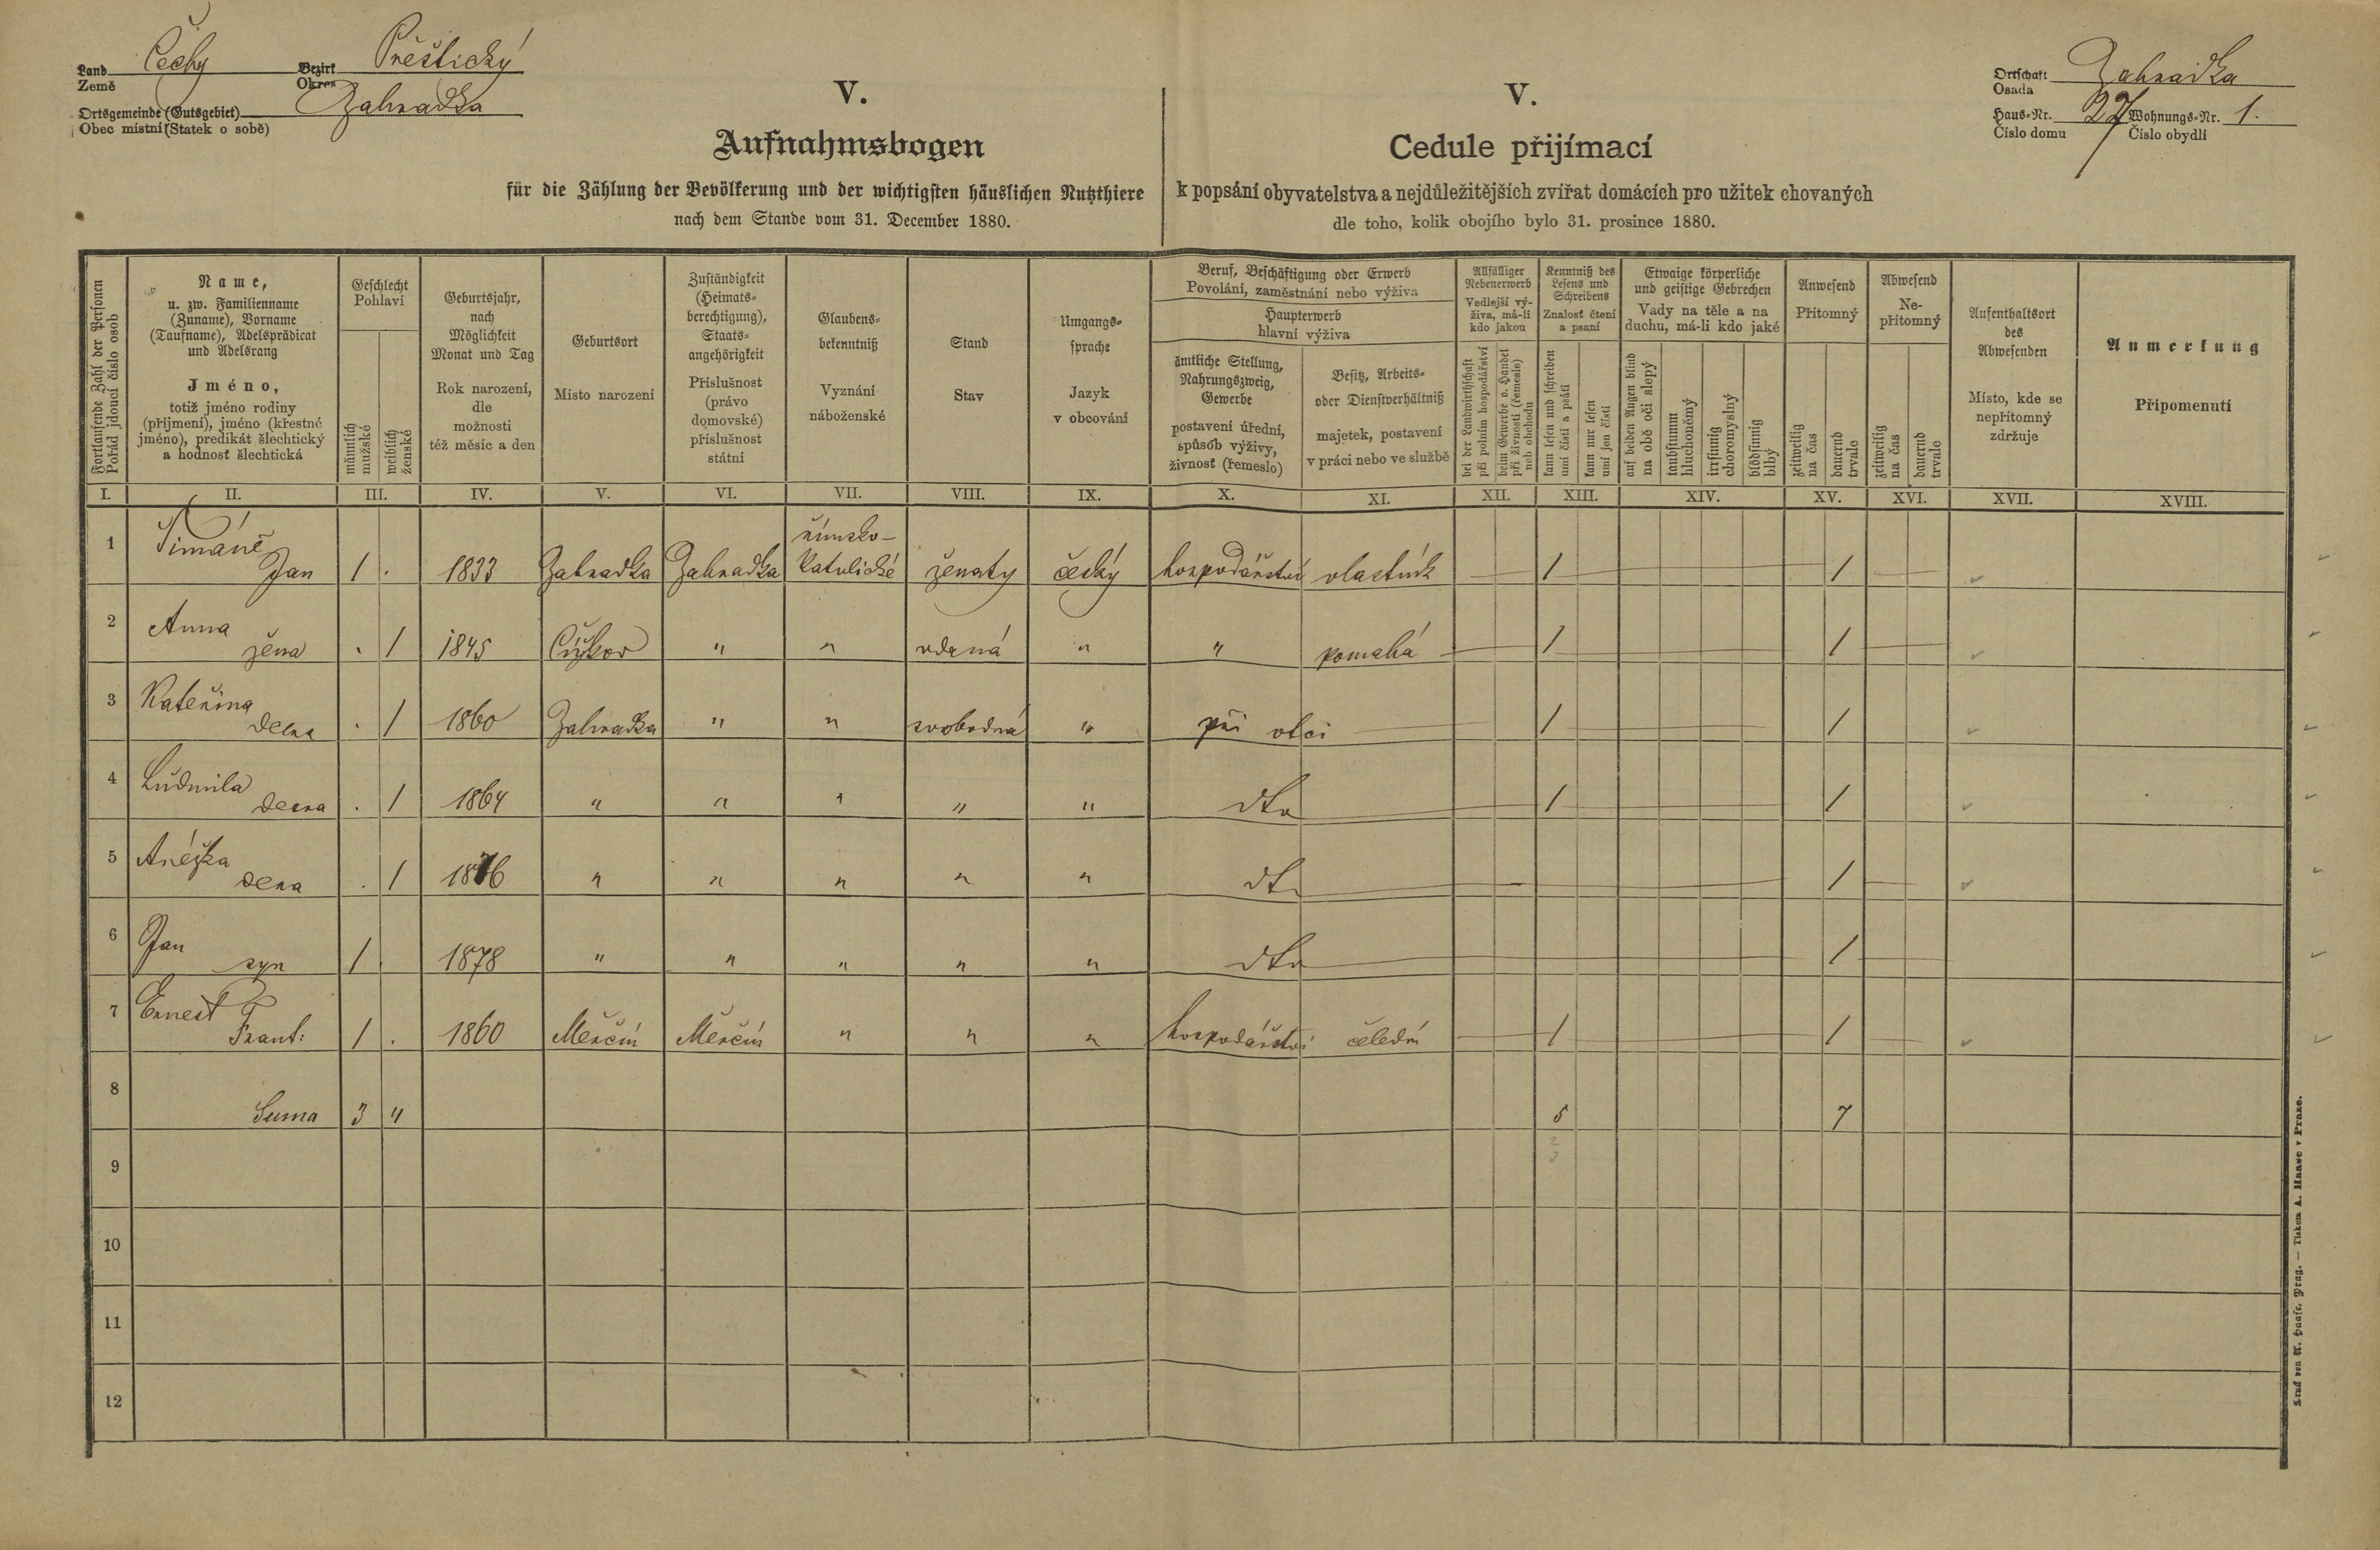 Land Čechy Bezirk Přeštický
Země Okres
Ortsgemeinde (Gutsgebiet) Zahradka
Obec místní (Statek o sobě)
Ortschaft Zahradka
Osada
Haus-Nr. 27 Wohnungs-Nr. 1.
Číslo domu Číslo obydlí
V.
Aufnahmsbogen
für die Zählung der Bevölkerung und der wichtigsten häuslichen Nutzthiere
nach dem Stande vom 31. December 1880.
V.
Cedule přijímací
k popsání obyvatelstva a nejdůležitějších zvířat domácích pro užitek chovaných
dle toho, kolik obojího bylo 31. prosince 1880.
Fortlaufende Zahl der Personen
Pořád jdoucí číslo osob
Name,
u. zw. Familienname
(Zuname), Vorname
(Taufname), Adelsprädicat
und Adelsrang
Jméno,
totiž jméno rodiny
(příjmení), jméno (křestné
jméno), predikát šlechtický
a hodnost šlechtická
Geschlecht
Pohlaví
männlich
mužské
weiblich
ženské
Geburtsjahr,
nach
Möglichkeit
Monat und Tag
Rok narození,
dle
možnosti
též měsíc a den
Geburtsort
Místo narození
Zuständigkeit
(Heimats-
berechtigung),
Staats-
angehörigkeit
Příslušnost
(právo
domovské)
příslušnost
státní
Glaubens-
bekenntniß
Vyznání
náboženské
Stand
Stav
Umgangs-
sprache
Jazyk
v obcování
Beruf, Beschäftigung oder Erwerb
Povolání, zaměstnání nebo výživa
Haupterwerb
hlavní výživa
ämtliche Stellung,
Nahrungszweig,
Gewerbe
postavení úřední,
spůsob výživy,
živnost (řemeslo)
Besitz, Arbeits-
oder Dienstverhältniß
majetek, postavení
v práci nebo ve službě
Allfälliger
Nebenerwerb
Vedlejší vý-
živa, má-li
kdo jakou
bei der Landwirthschaft
při polním hospodářství
beim Gewerbe o. Handel
při živnosti (řemesle)
neb obchodu
Kenntniß des
Lesens und
Schreibens
Znalost čtení
a psaní
kann lesen und schreiben
umí čísti a psáti
kann nur lesen
umí jen čísti
Etwaige körperliche
und geistige Gebrechen
Vady na těle a na
duchu, má-li kdo jaké
auf beiden Augen blind
na obě oči slepý
taubstumm
hluchoněmý
irrsinnig
choromyslný
blödsinnig
blbý
Anwesend
Přítomný
zeitweilig
na čas
dauernd
trvale
Abwesend
Ne-
přítomný
zeitweilig
na čas
dauernd
trvale
Aufenthaltsort
des
Abwesenden
Místo, kde se
nepřítomný
zdržuje
Anmerkung
Připomenutí
I. II. III. IV. V. VI. VII. VIII. IX. X. XI. XII. XIII. XIV. XV. XVI. XVII. XVIII.
1 Šimáně
Jan 1 . 1833 Zahradka Zahradka římsko-
katolické ženatý český hospodářství vlastník 1 1
2 Anna
žena . 1 1845 Čížkov " " vdaná " " pomahá 1 1
3 Kateřina
dcera . 1 1860 Zahradka " " svobodná " při otci 1 1
4 Ludmila
dcera . 1 1864 " " " " " dto 1 1
5 Anéžka
dcera . 1 1876 " " " " " dto 1
6 Jan
syn 1 . 1878 " " " " " dto 1
7 Ernest
Frant: 1 . 1860 Měrčín Měrčín " " " hospodářství čeledín 1 1
8
Suma 3 4 5 7
2
3
9
10
11
12
Druck von A. Haase, Prag. — Tiskem A. Haase v Praze.